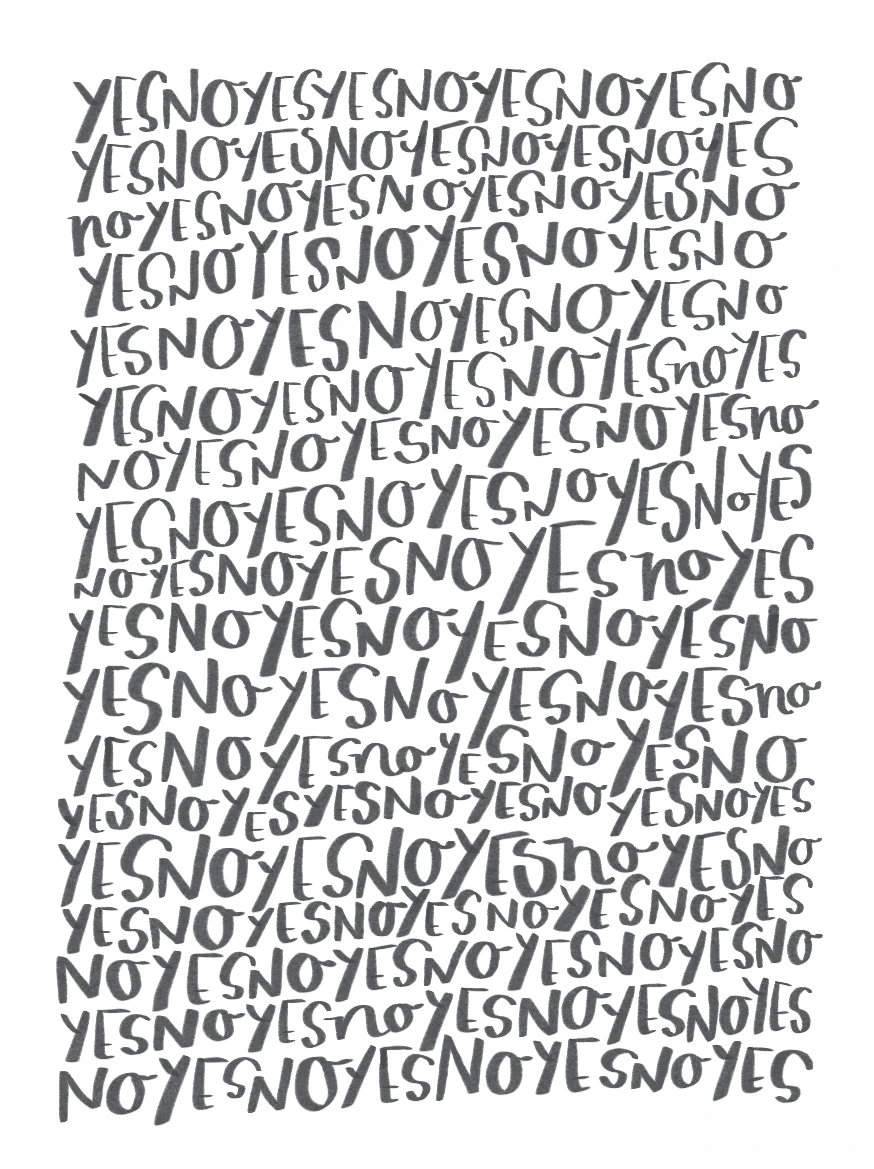 YESNOYESYESNOYESNOYESNO
YESNOYESNOYESNOYESNOYES
noYESNOYESNOYESNOYESNO
YESNOYESNOYESNOYESNO
YESNOYESNOYESNOYESNO
YESNOYESNOYESNOYESnoYES
NOYESNOYESNOYESNOYESno
YESNOYESNOYESNOYESNoYES
NOYESNOYESNOYESnoYES
YESNOYESNOYESNOYESNO
YESNOYESNOYESNOYESno
YESNOYESnoYESNOYESNO
YESNOYESYESNOYESNOYESNOYES
YESNOYESNOYESnoYESNO
YESNOYESNOYESNOYESNOYES
NOYESNOYESNOYESNOYESNO
YESNOYESnoYESNOYESNOYES
NOYESNOYESNOYESNOYES